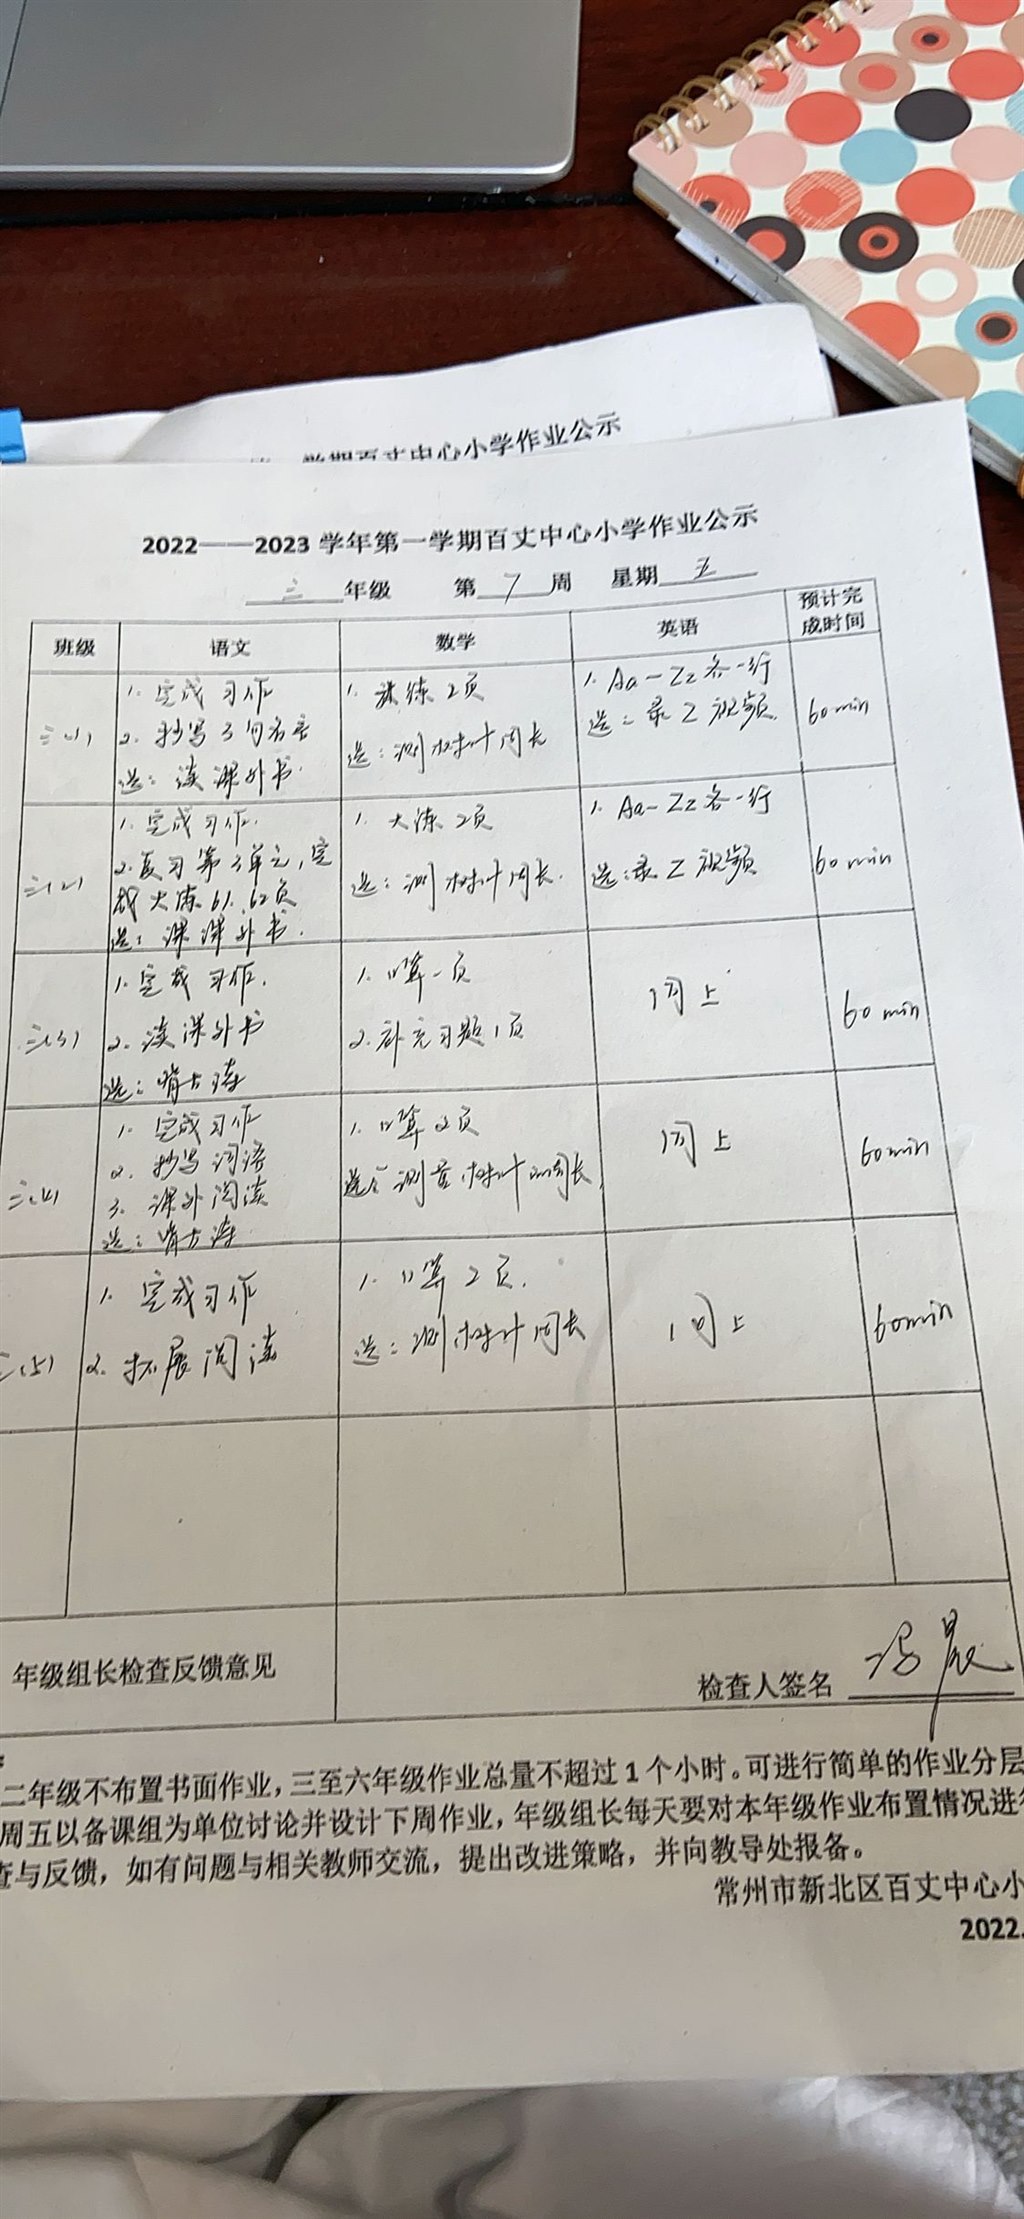 学期百丈中心小学作业公示
2022——2023 学年第一学期百丈中心小学作业公示
三 年级 第 7 周 星期 五
班级 语文 数学 英语 预计完成时间
三(1)
1. 完成习作
2. 抄写3句名言
选：读课外书.
1. 练2页
选：测树叶周长
1. Aa-Zz各一行
选：录Z视频
60min
三(2)
1. 完成习作.
2. 复习第3单元,完
成大练61.62页
选：课课外书.
1. 大练2页
选：测树叶周长.
1. Aa-Zz各一行
选:录Z视频
60min
三(3)
1. 完成习作.
2. 读课外书
选：背古诗
1. 口算一页
2. 补充习题1页
同上
60min
三(4)
1. 完成习作
2. 抄写词语
3. 课外阅读
选：背古诗
1. 口算2页
选：测量树叶的周长.
同上
60min
三(5)
1. 完成习作
2. 拓展阅读
1. 口算2页.
选：测树叶周长
同上
60min
年级组长检查反馈意见
检查人签名 冯晨
二年级不布置书面作业，三至六年级作业总量不超过 1 个小时。可进行简单的作业分层
周五以备课组为单位讨论并设计下周作业，年级组长每天要对本年级作业布置情况进行
查与反馈，如有问题与相关教师交流，提出改进策略，并向教导处报备。
常州市新北区百丈中心小
2022.